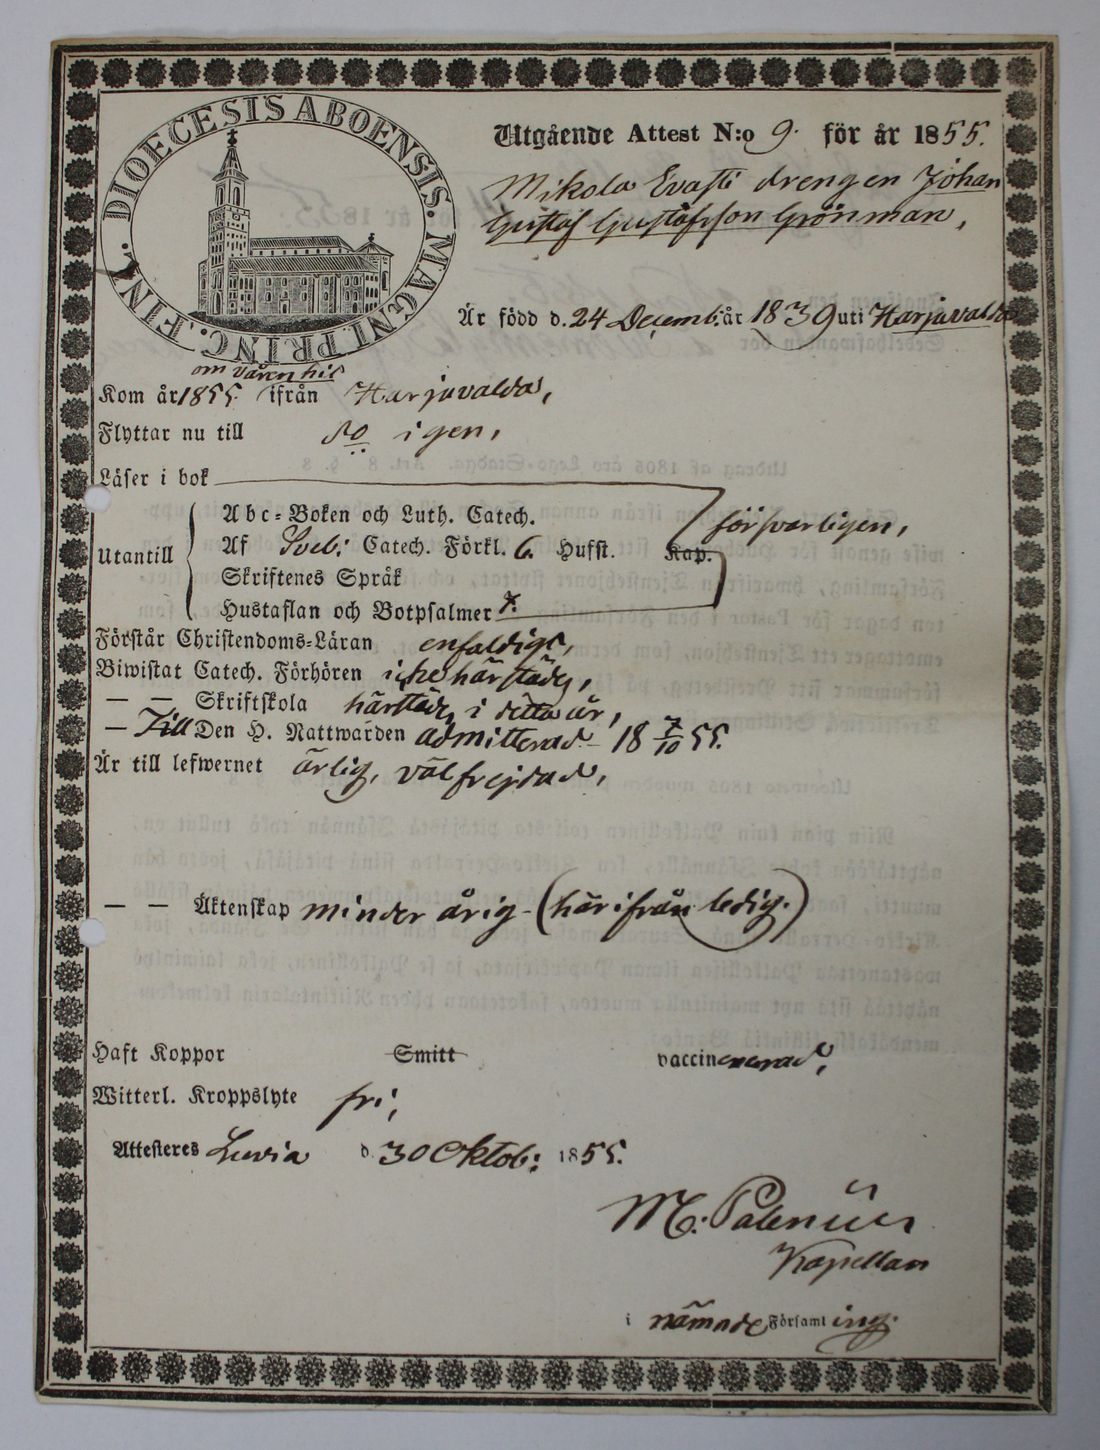 DIOECESIS ABOENSIS. MAGNI. PRINC. FINL.
Utgående Attest N:o 9. för år 1855.
Mikola Evasti drengen Johan
Gustaf Gustafsson Grönman,
Är född d. 24 Decemb: år 1839 uti Harjavalda
om våren hit
Kom år 1855. ifrån Harjavalda,
Flyttar nu till do igen,
Läser i bok
försvarligen,
Abc-Boken och Luth. Catech.
Utantill
Af Sveb: Catech. Förkl. 6. Hufst. Kap.
Skriftenes Språk
Hustaflan och Botpsalmer
Förstår Christendoms-Läran enfaldigt,
Biwistat Catech. Förhören icke härstädes,
— — Skriftskola härstädes i detta år,
— Till Den H. Nattwarden admitterad 18 7/10 55.
Är till lefwernet ärlig, välfrejdad,
— — Äktenskap minder årig - (härifrån ledig.)
Haft Koppor Smitt vaccinenerad,
Witterl. Kroppslyte fri,
Attesteres Luvia d. 30 Oktob: 1855.
M: Palenius
Kapellan
i nämnde Församling.